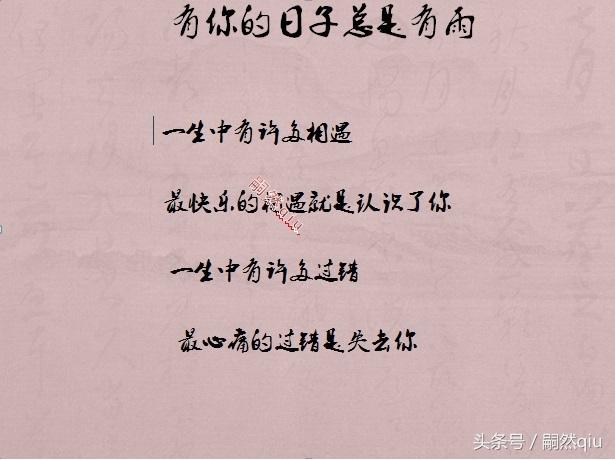 有你的日子总是有雨
一生中有许多相遇
最快乐的相遇就是认识了你
嗣然qiu
一生中有许多过错
最心痛的过错是失去你
头条号 / 嗣然qiu